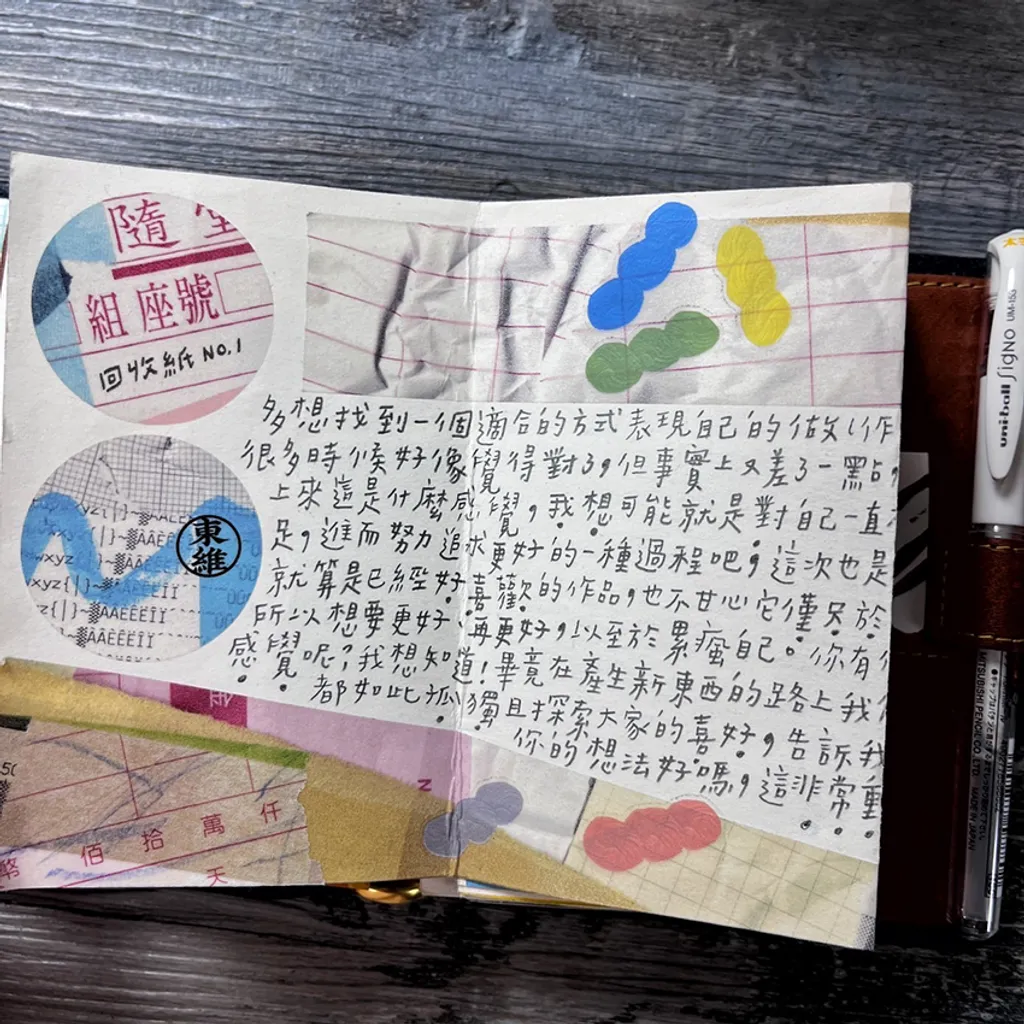 隨堂
組座號
回收紙 NO.1
多想找到一個適合的方式表現自己的做作
很多時候好像覺得對了,但事實上又差了一點,
上來這是什麼感覺,我想可能就是對自己一直不
足,進而努力追求更好的一種過程吧,這次也是
就算是已經好喜歡的作品,也不甘心它僅只於
所以想要更好、再更好,以至於累瘋自己。你有
感覺呢?我想知道!畢竟在產生新東西的路上我
都如此孤獨且探索大家的喜好,告訴我
你的想法好嗎,這非常重
東維
xyz{|}~▒ÀÁÈË
wxyz{|}~▒ÀÁÈËÊÏ
wxyz{|}~▒ÀÁÈËÊÏÌ
z{|}~▒ÀÁÈËÊÏÌ
佰拾萬仟
幣
天
N
.50
uni-ball SigNO UM-153
MITSUBISHI PENCIL CO., LTD. MADE IN JAPAN